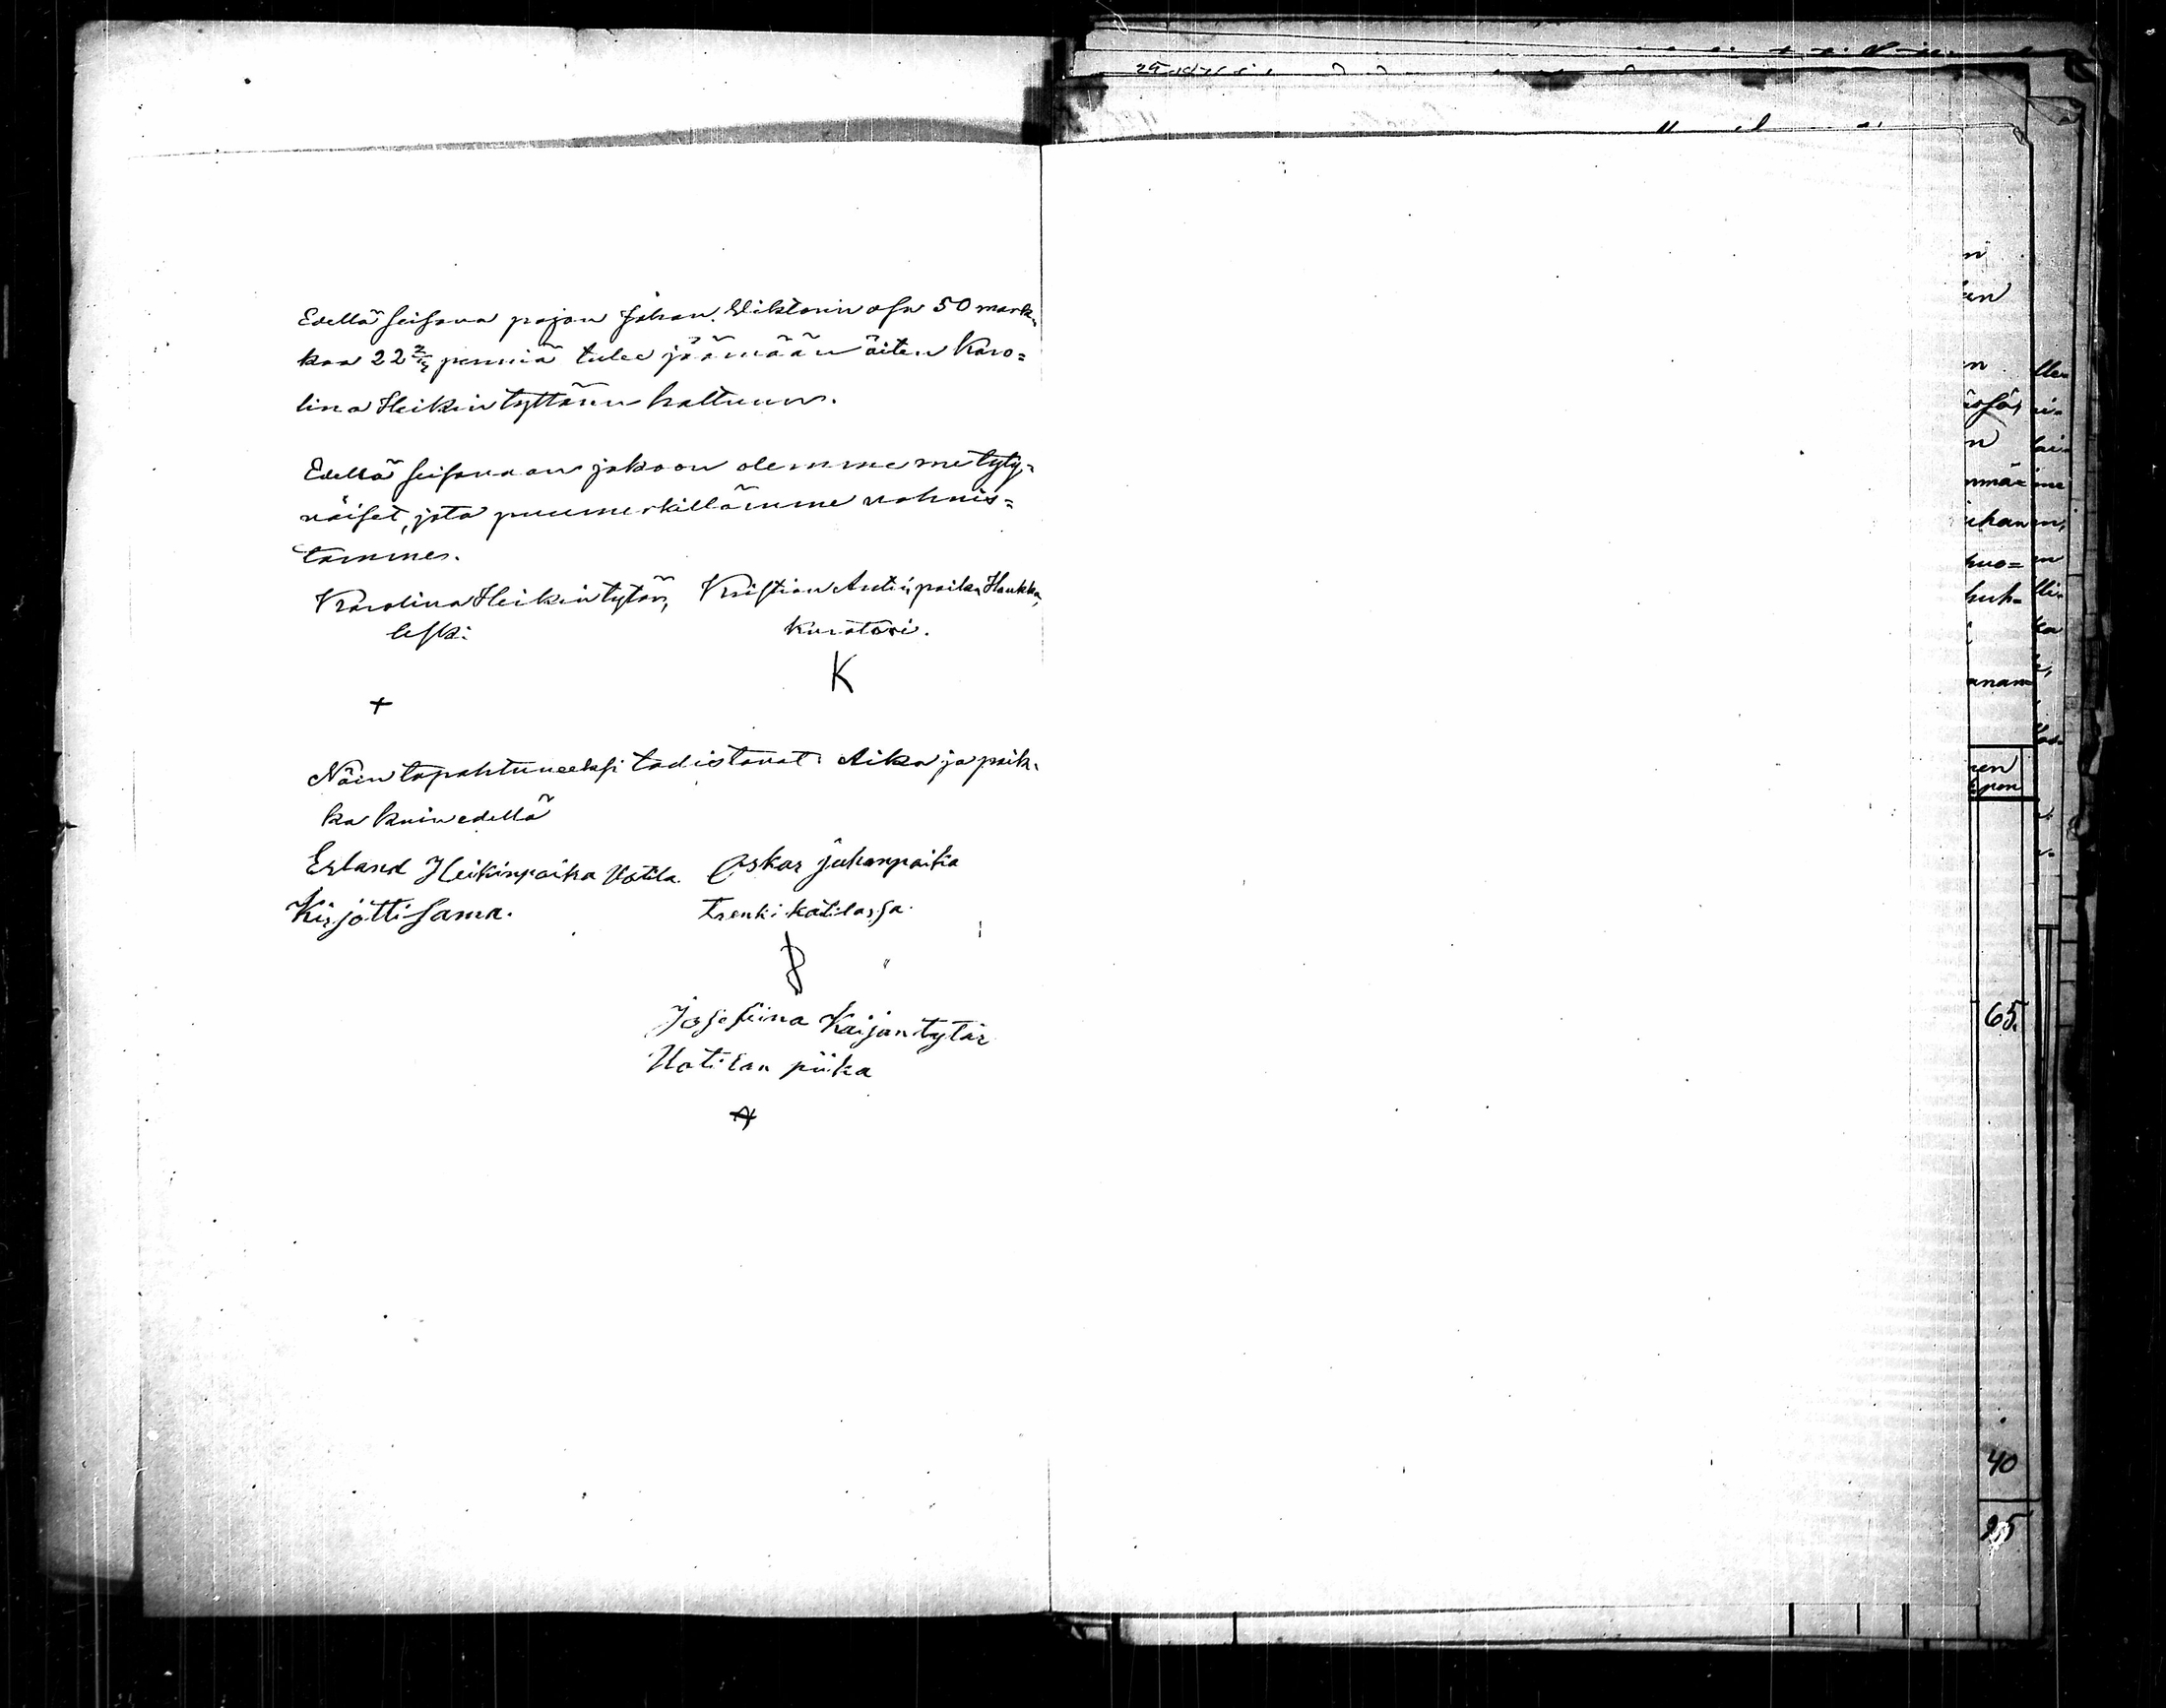 Edellä seisova pojan Johan Viktorin osa 50 mark-
kaa 22 2/7 penniä tulee jäämään äiten Karo=
lina Heikintyttären haltuun.
Edellä seisovaan jakoon olemme me tyty-
väiset, jota puumerkillämme vahvis=
tamme.
Karolina Heikintytär, Kristian Antinpoika Haukka,
leski kuratori.
K
+
Näin tapahtuneeksi todistavat. Aika ja paik-
ka kuin edellä
Erland Heikinpoika Uotila Oskar Juhanpoika
Kirjotti sama. trenki kätilassa
Josefiina Kaijantytär
Uotilan piika
n
en
n
n
mmä=
ihan
huo=
huh=
anam
65.
40
25